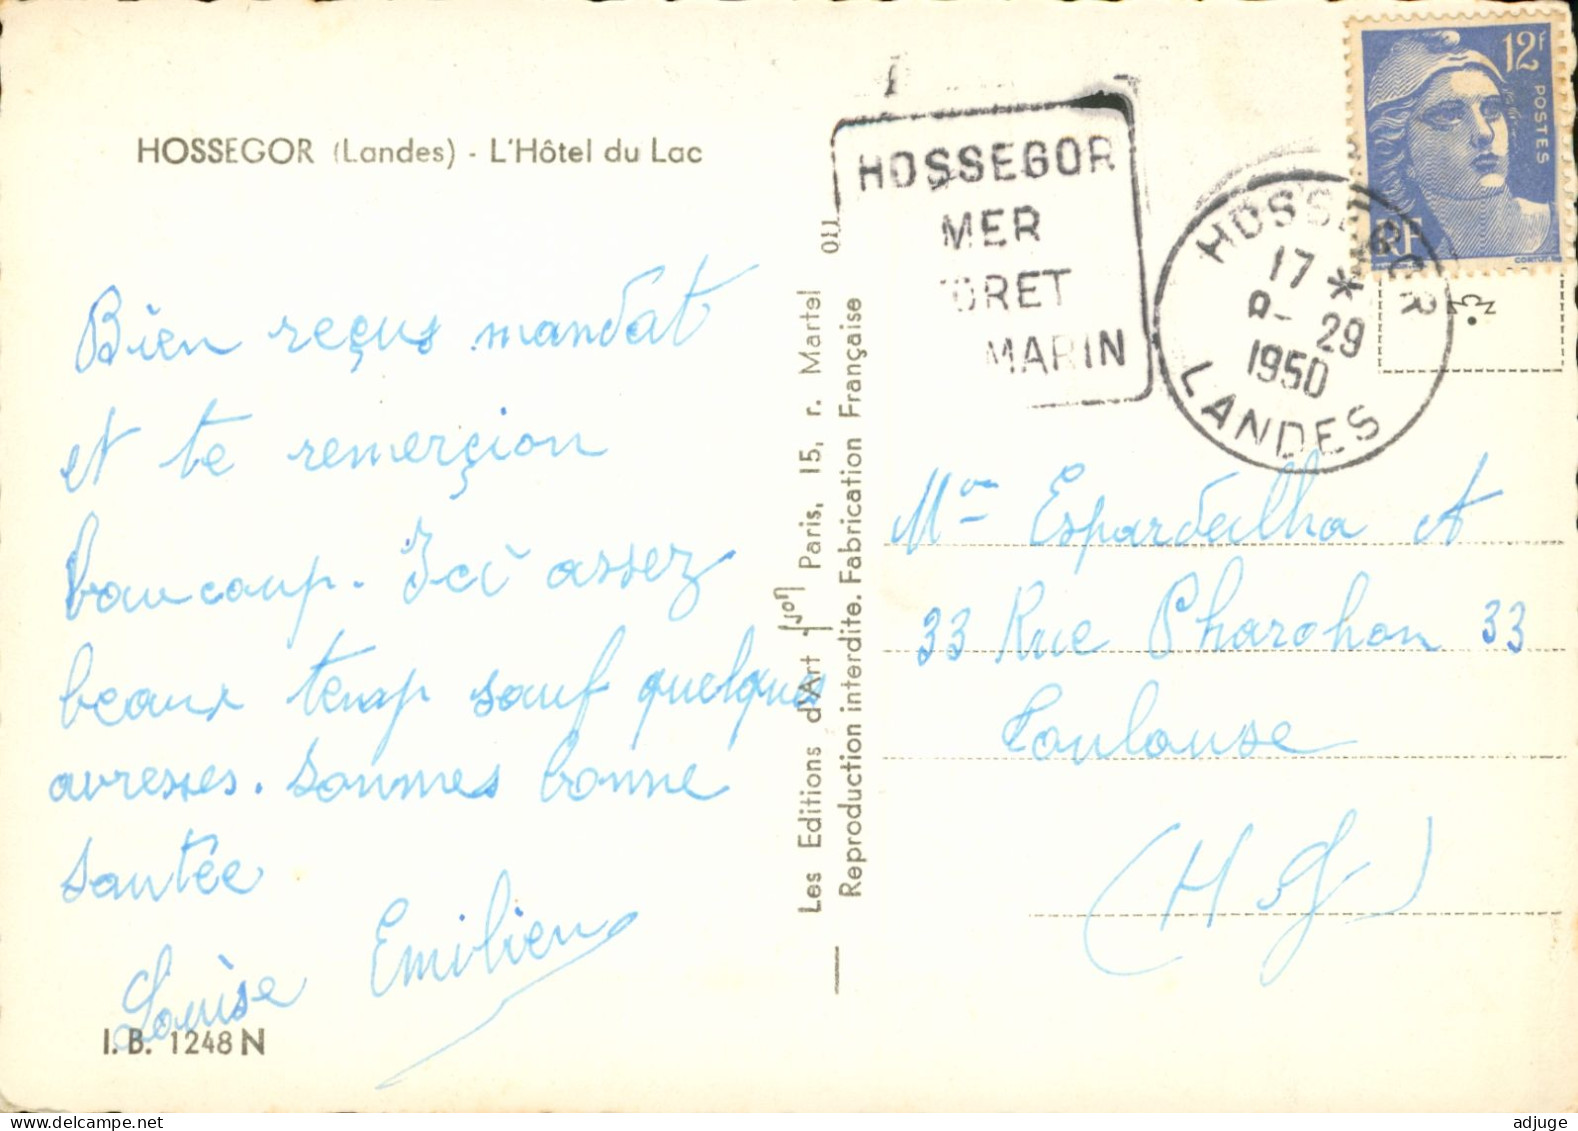 HOSSEGOR (Landes) - L'Hôtel du Lac
Bien reçus mandat
et te remerçion
baucoup. Ici assez
beaux temp sauf quelques
avresses. Sommes bonne
santée
Louise Emilien
I. B. 1248 N
Les Editions d'Art Yvon Paris, 15, r. Martel
Reproduction interdite. Fabrication Française
HOSSEGOR
MER
ORET
MARIN
HOSSEGOR
17 *
8 - 29
1950
LANDES
12F
POSTES
RF
Mme Espardelha A
33 Rue Pharohon 33
Toulouse
(H G)
adjuge